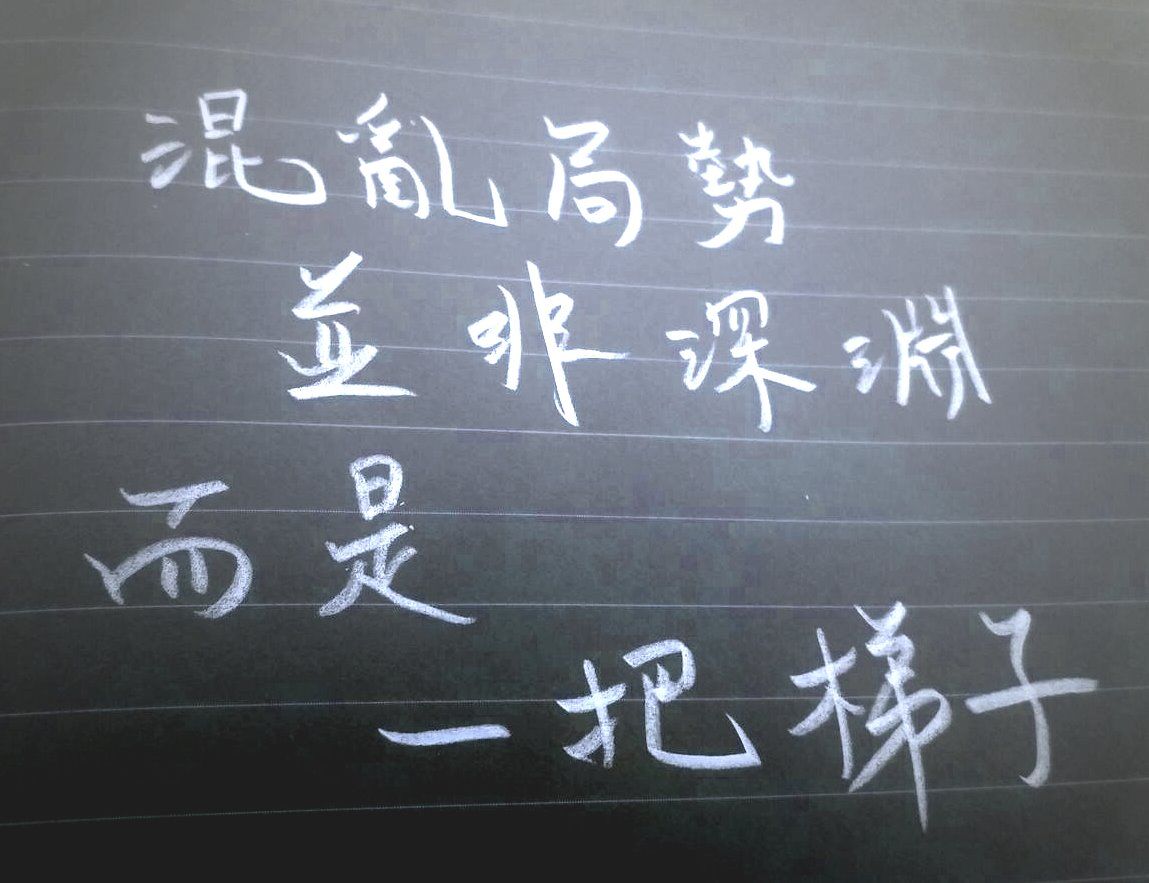 混亂局勢
並非深淵
而是
一把梯子